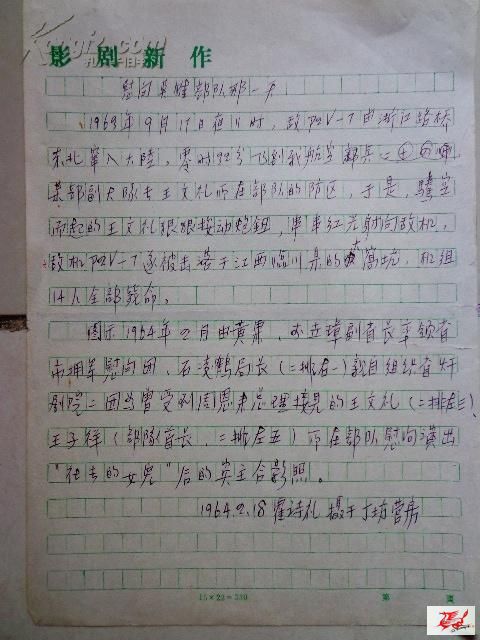 影剧新作
慰问英雄部队那一天
1963年9月17日夜11时，敌P2V-7由浙江路桥
东北窜入大陆，零时32分飞到我航空兵二
某部副大队长王文礼所在部队的防区，于是，骤空
而起的王文礼狠狠按动炮钮，串串红光射向敌机，
敌机P2V-7遂被击落于江西临川县的大窝坑，机组
14人全部毙命。
图示1964年2月由黄霖、李世璋副省长率领省
市拥军慰问团，石凌鹤局长（二排右一）亲自组织省歼
剧院二团为曾受到周恩来总理接见的王文礼（二排左三）、
王子祥（部队首长，二排左五）所在部队慰问演出
“社长的女儿”后的英主合影照。
1964.2.18 罗诗礼 摄于 营房
15×22=330
第 页